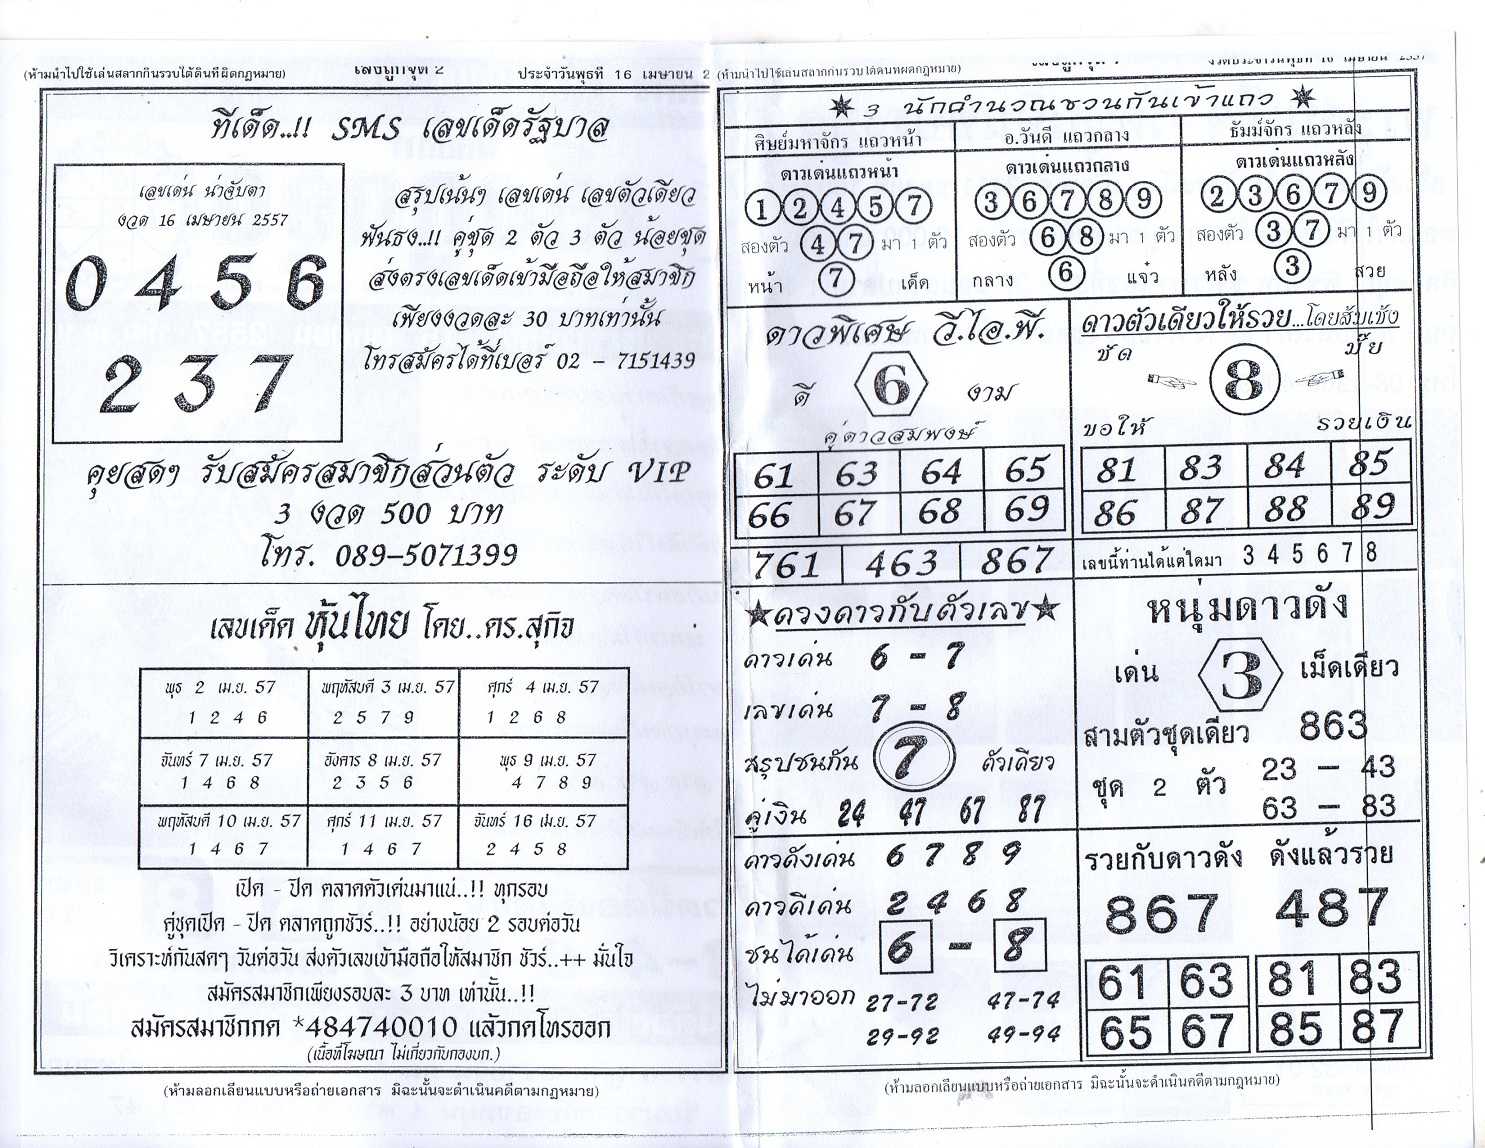 (ห้ามนำไปใช้เล่นสลากกินรวบได้ดินที่ผิดกฎหมาย)
ประจำวันพุธที่ 16 เมษายน 2
ทีเด็ด..!! SMS เลขเด็ดรัฐบาล
เลขเด่น น่าจับตา
งวด 16 เมษายน 2557
0 4 5 6
2 3 7
สรุปเน้นๆ เลขเด่น เลขตัวเดียว
ฟันธง..!! คู่ชุด 2 ตัว 3 ตัว น้อยชุด
ส่งตรงเลขเด็ดเข้ามือถือให้สมาชิก
เพียงงวดละ 30 บาทเท่านั้น
โทรสมัครได้ที่เบอร์ 02 - 7151439
คุยสดๆ รับสมัครสมาชิกส่วนตัว ระดับ VIP
3 งวด 500 บาท
โทร. 089-5071399
เลขเด็ด หุ้นไทย โดย..ดร.สุกิจ
พุธ 2 เม.ย. 57
1 2 4 6
พฤหัสบดี 3 เม.ย. 57
2 5 7 9
ศุกร์ 4 เม.ย. 57
1 2 6 8
จันทร์ 7 เม.ย. 57
1 4 6 8
อังคาร 8 เม.ย. 57
2 3 5 6
พุธ 9 เม.ย. 57
4 7 8 9
พฤหัสบดี 10 เม.ย. 57
1 4 6 7
ศุกร์ 11 เม.ย. 57
1 4 6 7
จันทร์ 16 เม.ย. 57
2 4 5 8
เปิด - ปิด ตลาดตัวเด่นมาแน่..!! ทุกรอบ
คู่ชุดเปิด - ปิด ตลาดถูกชัวร์..!! อย่างน้อย 2 รอบต่อวัน
วิเคราะห์กันสดๆ วันต่อวัน ส่งตัวเลขเข้ามือถือให้สมาชิก ชัวร์..++ มั่นใจ
สมัครสมาชิกเพียงรอบละ 3 บาท เท่านั้น..!!
สมัครสมาชิกกด *484740010 แล้วกดโทรออก
(เนื้อที่โฆษณา ไม่เกี่ยวกับกองบก.)
(ห้ามลอกเลียนแบบหรือถ่ายเอกสาร มิฉะนั้นจะดำเนินคดีตามกฎหมาย)
3 นักคำนวณชวนกันเข้าแถว
ศิษย์มหาจักร แถวหน้า
ดาวเด่นแถวหน้า
1 2 4 5 7
สองตัว 4 7 มา 1 ตัว
หน้า 7 เด็ด
อ.วันดี แถวกลาง
ดาวเด่นแถวกลาง
3 6 7 8 9
สองตัว 6 8 มา 1 ตัว
กลาง 6 แจ๋ว
ธัมม์จักร แถวหลัง
ดาวเด่นแถวหลัง
2 3 6 7 9
สองตัว 3 7 มา 1 ตัว
หลัง 3 สวย
ดาวพิเศษ วี.ไอ.พี.
ดี 6 งาม
คู่ดาวสมพงษ์
61 63 64 65
66 67 68 69
761 463 867
ดาวตัวเดียวให้รวย...โดยสัมเช้ง
ชัด 8 มั๊ย
ขอให้ รวยเงิน
81 83 84 85
86 87 88 89
เลขนี้ท่านได้แต่ใดมา 3 4 5 6 7 8
ดวงดาวกับตัวเลข
ดาวเด่น 6 - 7
เลขเด่น 7 - 8
สรุปชนกัน 7 ตัวเดียว
คู่เงิน 24 47 67 87
หนุ่มดาวดัง
เด่น 3 เม็ดเดียว
สามตัวชุดเดียว 863
ชุด 2 ตัว 23 - 43
63 - 83
ดาวดังเด่น 6 7 8 9
ดาวดีเด่น 2 4 6 8
ชนได้เด่น 6 - 8
ไม่มาออก 27-72 47-74
29-92 49-94
รวยกับดาวดัง ดังแล้วรวย
867 487
61 63 81 83
65 67 85 87
(ห้ามลอกเลียนแบบหรือถ่ายเอกสาร มิฉะนั้นจะดำเนินคดีตามกฎหมาย)